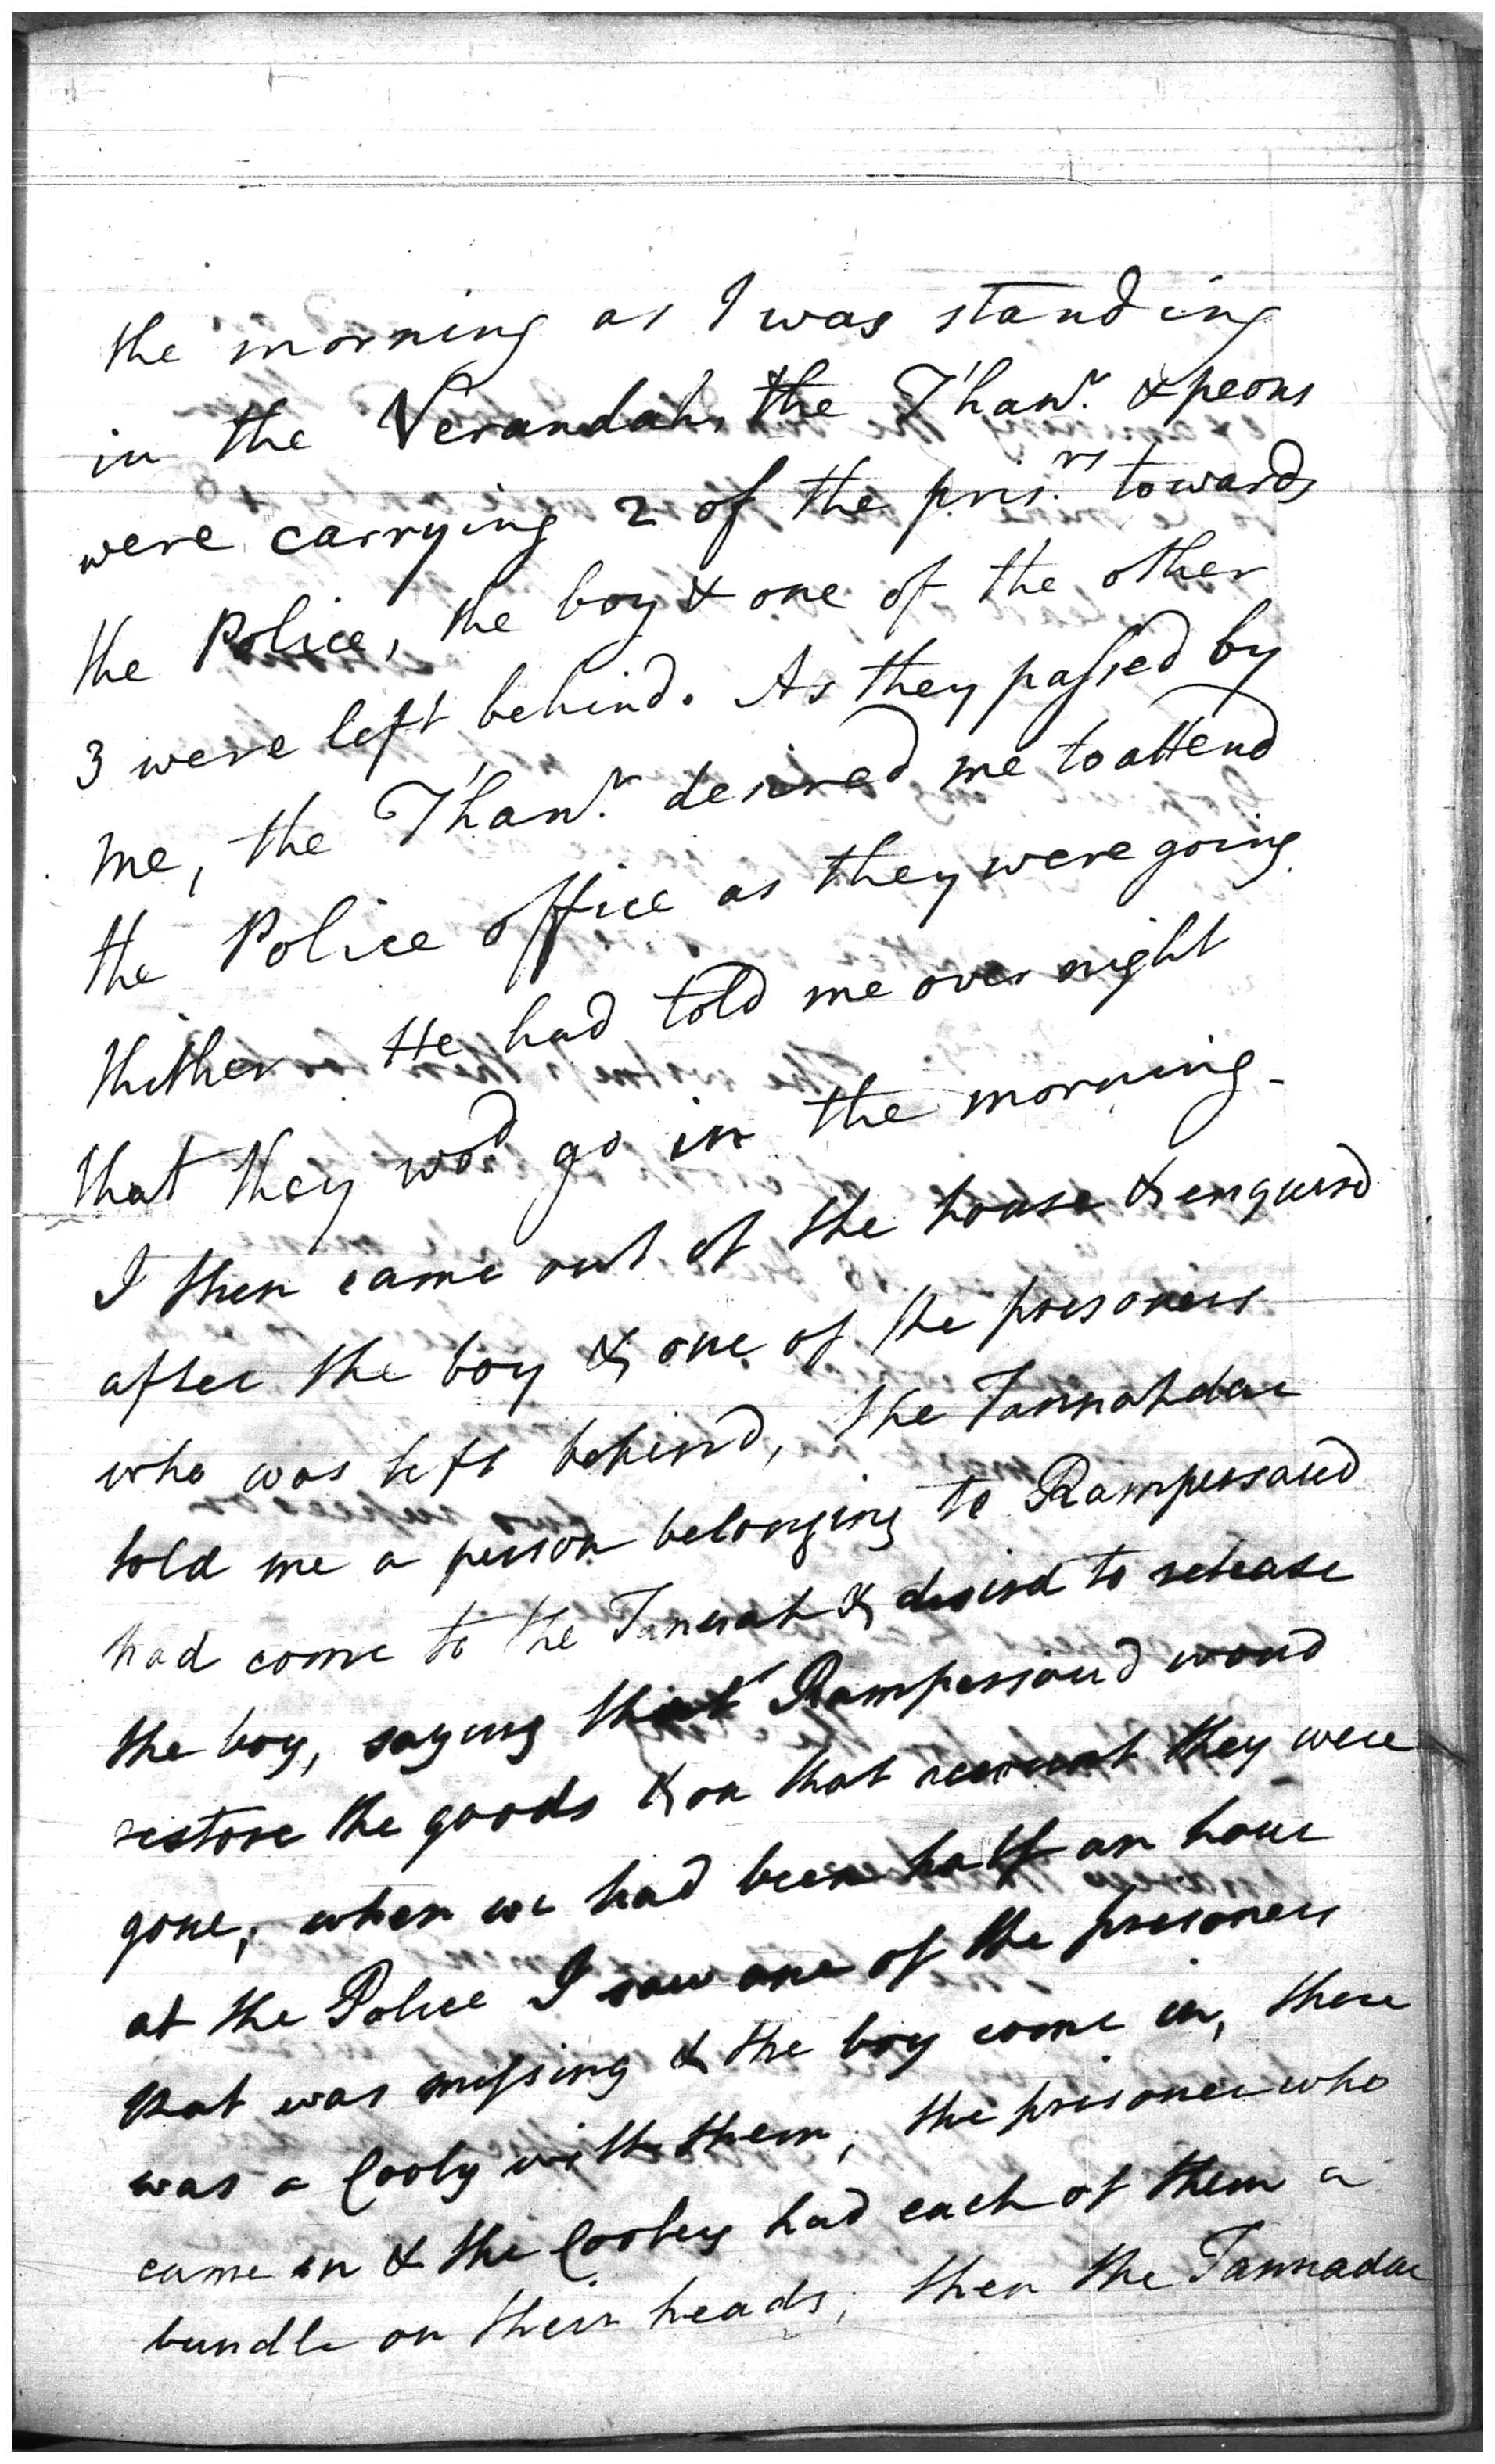 the morning as I was standing
in the Verandah, the Than.r & peons
were carrying 2 of the pris.rs towards
the Police, the boy & one of the other
3 were left behind. As they passed by
me, the Than.r desired me to attend
the Police office as they were going
thither. He had told me over night
that they wod go in the morning -
I then came out of the house & enquird
after the boy & one of the prisoners
who was left behind, the Tannahdar
told me a person belonging to Rampersaud
had come to the Tannah & desird to release
the boy, saying that Rampersaud woud
restore the goods & on that account they were
gone, when we had been half an hour
at the Police I saw one of the prisoners
that was missing & the boy come in, there
was a Cooly with them, the prisoner who
came in & the Cooleys had each of them a
bundle on their heads, then the Tannadar